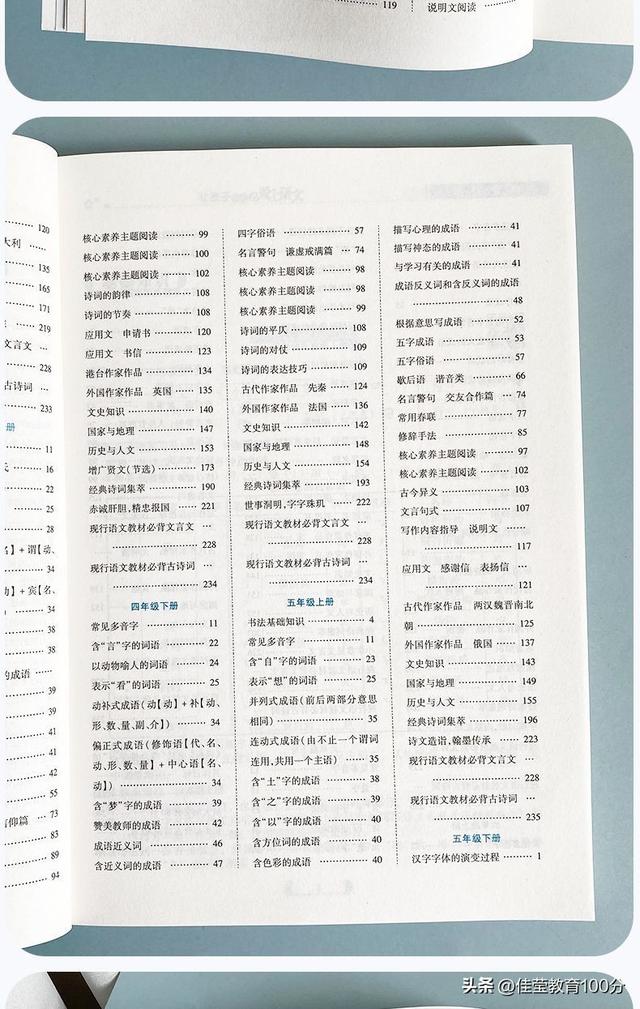 119
说明文阅读
120
135
165
171
219
文言文
228
古诗词
233
册
11
16
22
25
28
名】+谓【动、
31
动】+宾【名、
34
的成语
39
39
40
41
41
42
45
55
73
83
89
94
核心素养主题阅读 ……… 99
核心素养主题阅读 ……… 100
核心素养主题阅读 ……… 102
诗词的韵律 ……… 108
诗词的节奏 ……… 108
应用文 申请书 ……… 120
应用文 书信 ……… 123
港台作家作品 ……… 134
外国作家作品 英国 ……… 135
文史知识 ……… 140
国家与地理 ……… 147
历史与人文 ……… 153
增广贤文(节选) ……… 173
经典诗词集萃 ……… 190
赤诚肝胆,精忠报国 ……… 221
现行语文教材必背文言文 …
……… 228
现行语文教材必背古诗词 …
……… 234
四年级下册
常见多音字 ……… 11
含“言”字的词语 ……… 22
以动物喻人的词语 ……… 24
表示“看”的词语 ……… 25
动补式成语(动【动】+补【动、
形、数、量、副、介】) ……… 34
偏正式成语(修饰语【代、名、
动、形、数、量】+中心语【名、
动】) ……… 34
含“梦”字的成语 ……… 39
赞美教师的成语 ……… 42
成语近义词 ……… 46
含近义词的成语 ……… 47
四字俗语 ……… 57
名言警句 谦虚戒满篇 … 74
核心素养主题阅读 ……… 98
核心素养主题阅读 ……… 98
核心素养主题阅读 ……… 99
诗词的平仄 ……… 108
诗词的对仗 ……… 109
诗词的表达技巧 ……… 109
古代作家作品 先秦 ……… 124
外国作家作品 法国 ……… 136
文史知识 ……… 142
国家与地理 ……… 148
历史与人文 ……… 154
经典诗词集萃 ……… 193
世事洞明,字字珠玑 ……… 222
现行语文教材必背文言文 …
……… 228
现行语文教材必背古诗词 …
……… 234
五年级上册
书法基础知识 ……… 4
常见多音字 ……… 11
含“自”字的词语 ……… 23
表示“想”的词语 ……… 25
并列式成语(前后两部分意思
相同) ……… 35
连动式成语(由不止一个谓词
连用,共用一个主语) ……… 35
含“土”字的成语 ……… 38
含“之”字的成语 ……… 39
含“以”字的成语 ……… 40
含方位词的成语 ……… 40
含色彩的成语 ……… 40
描写心理的成语 ……… 41
描写神态的成语 ……… 41
与学习有关的成语 ……… 41
成语反义词和含反义词的成语
……… 48
根据意思写成语 ……… 52
五字成语 ……… 53
五字俗语 ……… 57
歇后语 谐音类 ……… 66
名言警句 交友合作篇 … 74
常用春联 ……… 77
修辞手法 ……… 85
核心素养主题阅读 ……… 97
核心素养主题阅读 ……… 102
古今异义 ……… 103
文言句式 ……… 107
写作内容指导 说明文 ……
……… 117
应用文 感谢信 表扬信 …
……… 121
古代作家作品 两汉魏晋南北
朝 ……… 125
外国作家作品 俄国 ……… 137
文史知识 ……… 143
国家与地理 ……… 149
历史与人文 ……… 155
经典诗词集萃 ……… 196
诗文造诣,翰墨传承 ……… 223
现行语文教材必背文言文 …
……… 228
现行语文教材必背古诗词 …
……… 235
五年级下册
汉字字体的演变过程 ……… 1
头条 @佳莹教育100分